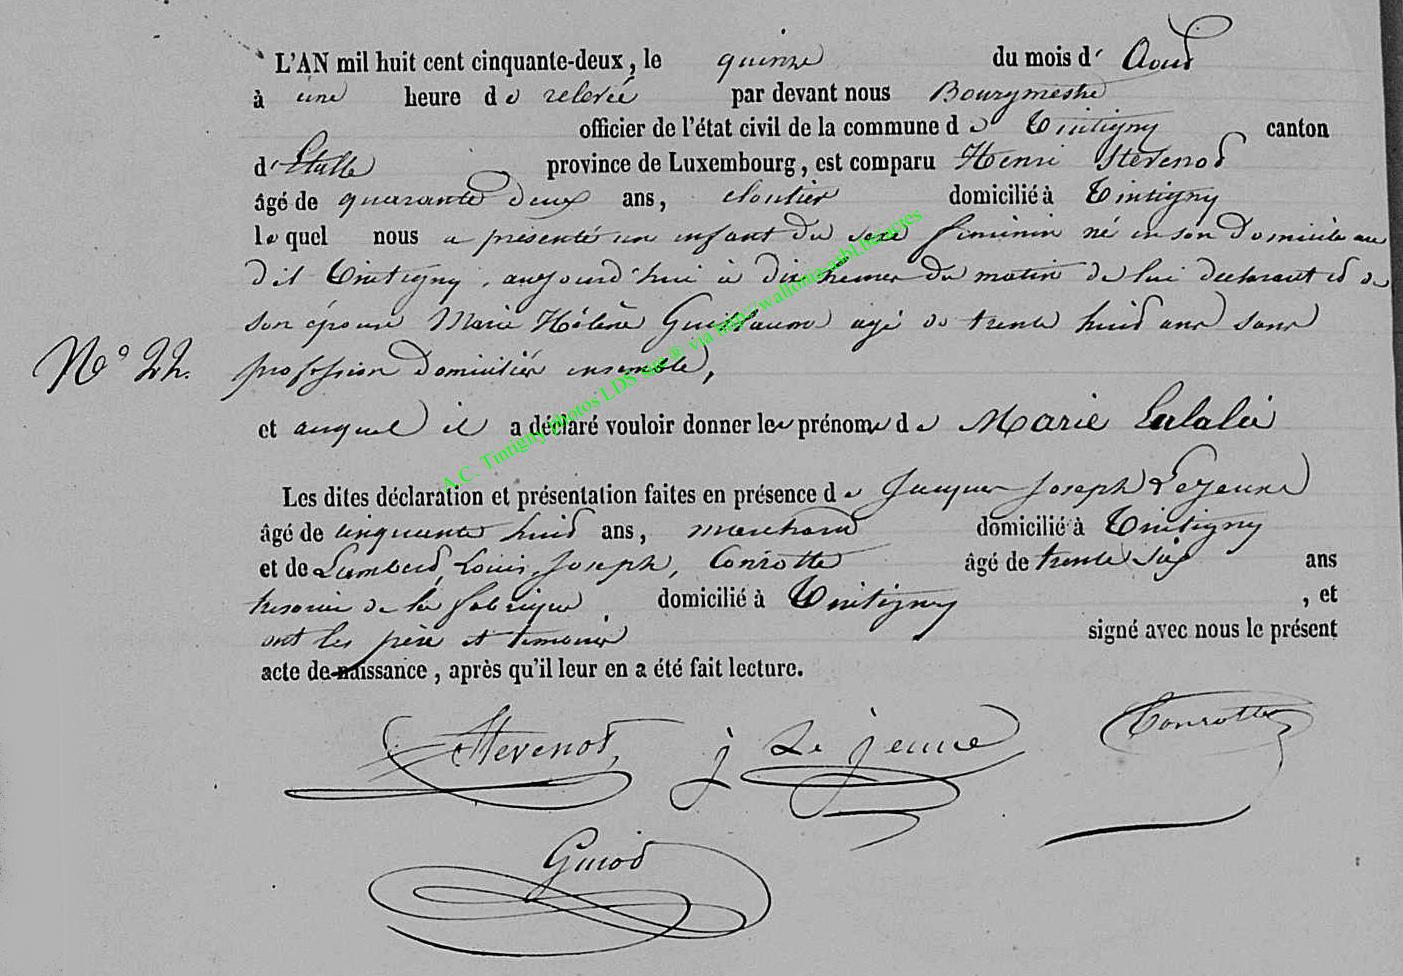 L'AN mil huit cent cinquante-deux, le quinze du mois d' Aout
à une heure de relevée par devant nous Bourgmestre
officier de l'état civil de la commune de Tintigny canton
d'Etalle province de Luxembourg, est comparu Henri Stévenot
âgé de quarante deux ans, cloutier domicilié à Tintigny
lequel nous a présenté un enfant du sexe féminin né en son domicile au
dit Tintigny, aujourd'hui à dix heures du matin de lui déclarant et de
son épouse Marie Hélène Guillaume agé de trente huit ans sans
N° 22. profession domiciliés ensemble,
et auquel il a déclaré vouloir donner les prénoms de Marie Eulalie
Les dites déclaration et présentation faites en présence de Jacques Joseph Lejeune
âgé de cinquante huit ans, marchand domicilié à Tintigny
et de Lambert, Louis, Joseph, Conrotte âgé de trente six ans
trésorier de la fabrique domicilié à Tintigny , et
ont les père et témoins signé avec nous le présent
acte de naissance, après qu'il leur en a été fait lecture.
Stévenot j Le jeune Conrotte
Guiot
A.C. Tintigny photos LDS via http://wallonia-asbl.be/actes